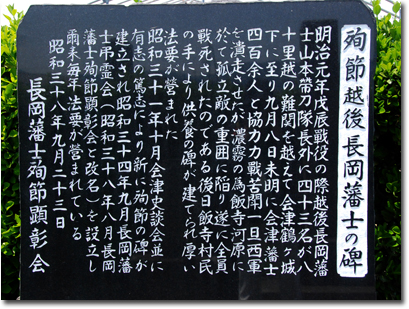 殉節越後長岡藩士の碑
明治元年戊辰戦役の際越後長岡藩
士山本帯刀隊長外に四十三名が八
十里越の難関を越えて会津鶴ヶ城
下に至り九月八日未明に会津藩士
四百余人と協力力戦苦闘一旦西軍
を潰走させたが濃霧の為飯寺河原に
於て孤立敵の重囲に陥り遂に全員
戦死されたのである後日飯寺村民
の手により供養の碑が建てられ厚い
法要が営まれた
昭和三十一年十月会津史談会並に
有志の篤志により新に殉節の碑が
建立され昭和三十四年九月長岡藩
士弔霊会(昭和三十八年八月長岡
藩士殉節顕彰会と改名)を設立し
爾来毎年法要が営まれている
昭和三十八年九月二十三日
長岡藩士殉節顕彰会